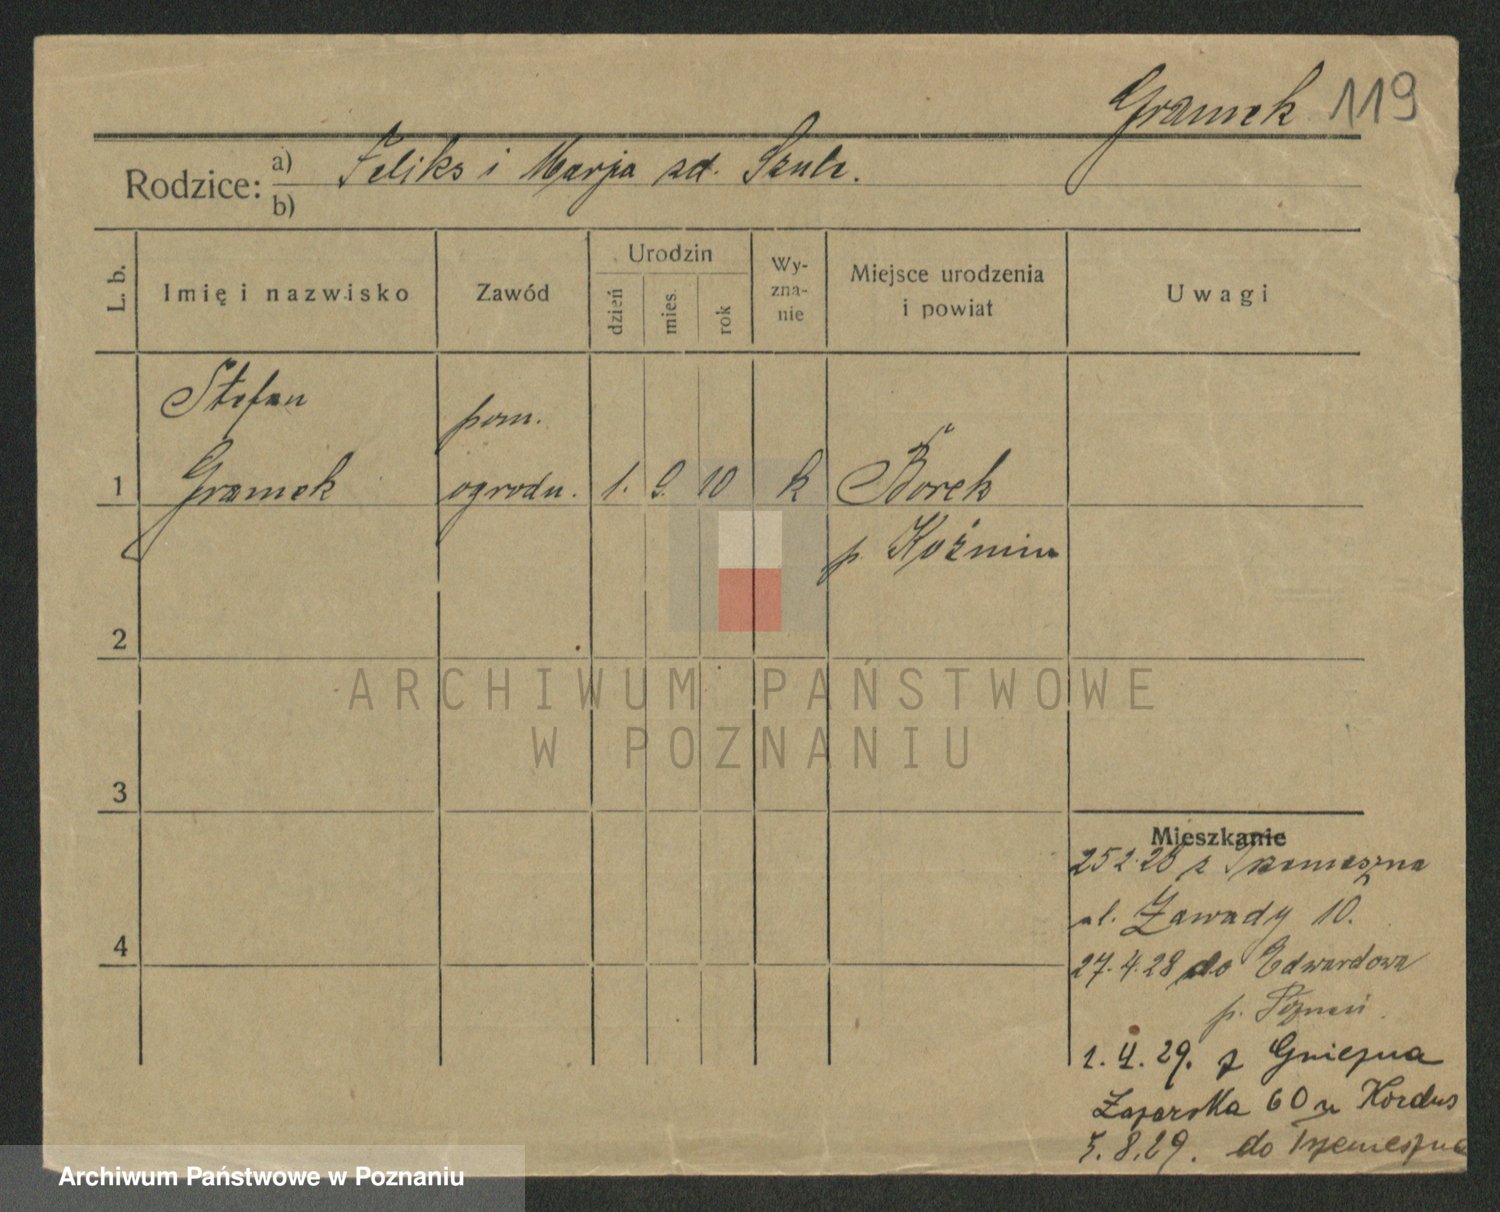 Gramek 119
Rodzice: a) Feliks i Marja zd. Szulc.
b)
L. b. Imię i nazwisko Zawód Urodzin dzień mies. rok Wy-zna-nie Miejsce urodzenia i powiat Uwagi
Stefan pom.
1 Gramek ogrodn. 1. 9. 10 k Borek
p. Koźmin
2
ARCHIWUM PAŃSTWOWE
W POZNANIU
3
Mieszkanie
25 2. 28 z Trzemeszna
ul. Zawady 10.
4
27. 4. 28 do Edwardowa
p. Poznań
1. 4. 29. z Gniezna
60 u Kordus
5. 8. 29. do Trzemeszna
Archiwum Państwowe w Poznaniu